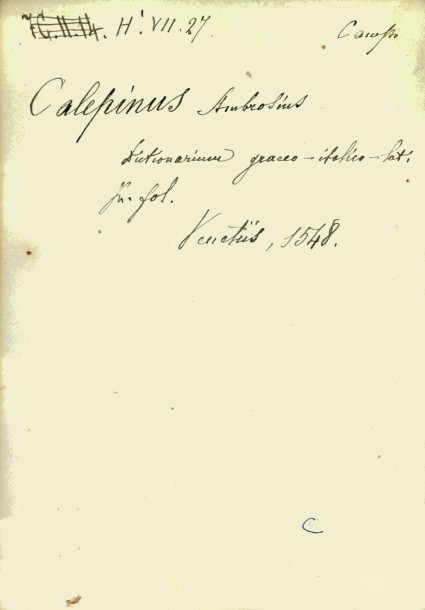 H! VII. 27.
Calepinus Ambrosius
Dictionarium graeco-italico-lat.
In fol.
Venetiis, 1548.
C